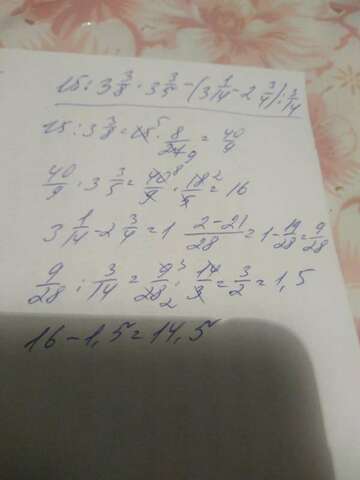 15 : 3 3/8 · 3 3/5 - (3 1/14 - 2 3/4) : 3/14
15 : 3 3/8 = 15 5 · 8/27 9 = 40/9
40/9 · 3 3/5 = 40 8/9 · 18 2/5 = 16
3 1/14 - 2 3/4 = 1 2-21/28 = 1 - 19/28 = 9/28
9/28 : 3/14 = 9 3/28 2 · 14/3 = 3/2 = 1,5
16 - 1,5 = 14,5